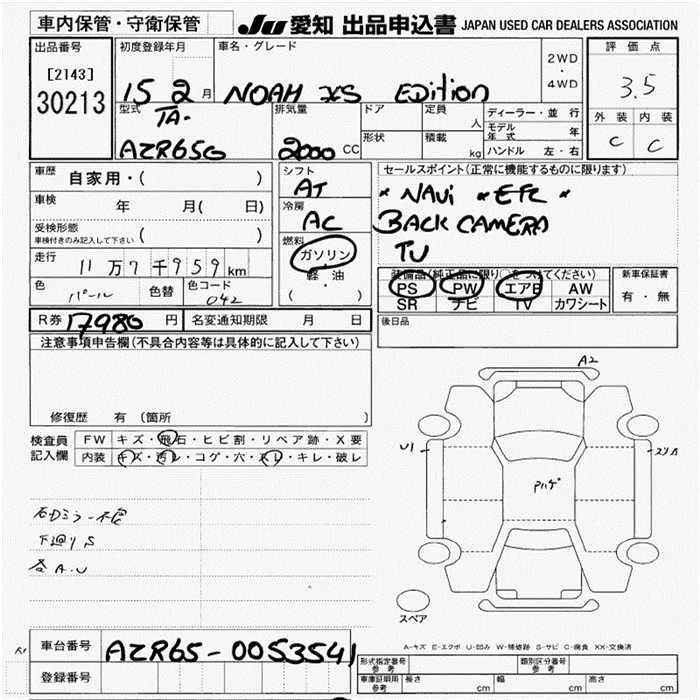 車内保管・守衛保管 JU 愛知 出品申込書 JAPAN USED CAR DEALERS ASSOCIATION
出品番号 初度登録年月 車名・グレード 評価点
[2143] 2WD・4WD
30213 15 2月 NOAH XS Edition 3.5
型式 TA- 排気量 ドア 定員 人 ディーラー・並行 外装 内装
モデル年式 年
AZR65G 2000 CC 形状 積載 kg ハンドル 左・右 C C
車歴 自家用・( ) シフト AT セールスポイント(正常に機能するものに限ります)
車検 年 月( 日) 冷房 AC * NAVi * EFC *
受検形態 車検付きのみ記入して下さい ( ) BACK CAMERA
燃料 ガソリン・軽油 ( ) TV
走行 11万7千959km 装備品(純正品に限り○をつけてください) 新車保証書
色 パール 色替 色コード 042 PS PW エアB AW 有・無
SR ナビ TV カワシート
R券 17980 円 名変通知期限 月 日 後日品
注意事項申告欄(不具合内容等は具体的に記入して下さい)
修復歴 有(箇所
A2
検査員記入欄 FW キズ・飛石・ヒビ割・リペア跡・X要
内装 キズ・汚レ・コゲ・穴・スレ・キレ・破レ
U1
Pハゲ
下廻り S
各 A.U
スペア
A-キズ E-エクボ U-凹み W-補修跡 S-サビ C-腐食 XX-交換済
車台番号 AZR65-0053541
登録番号
形式指定番号 参考 類別区分番号 参考
車庫証明用 参考 長さ cm 幅 cm 高さ cm